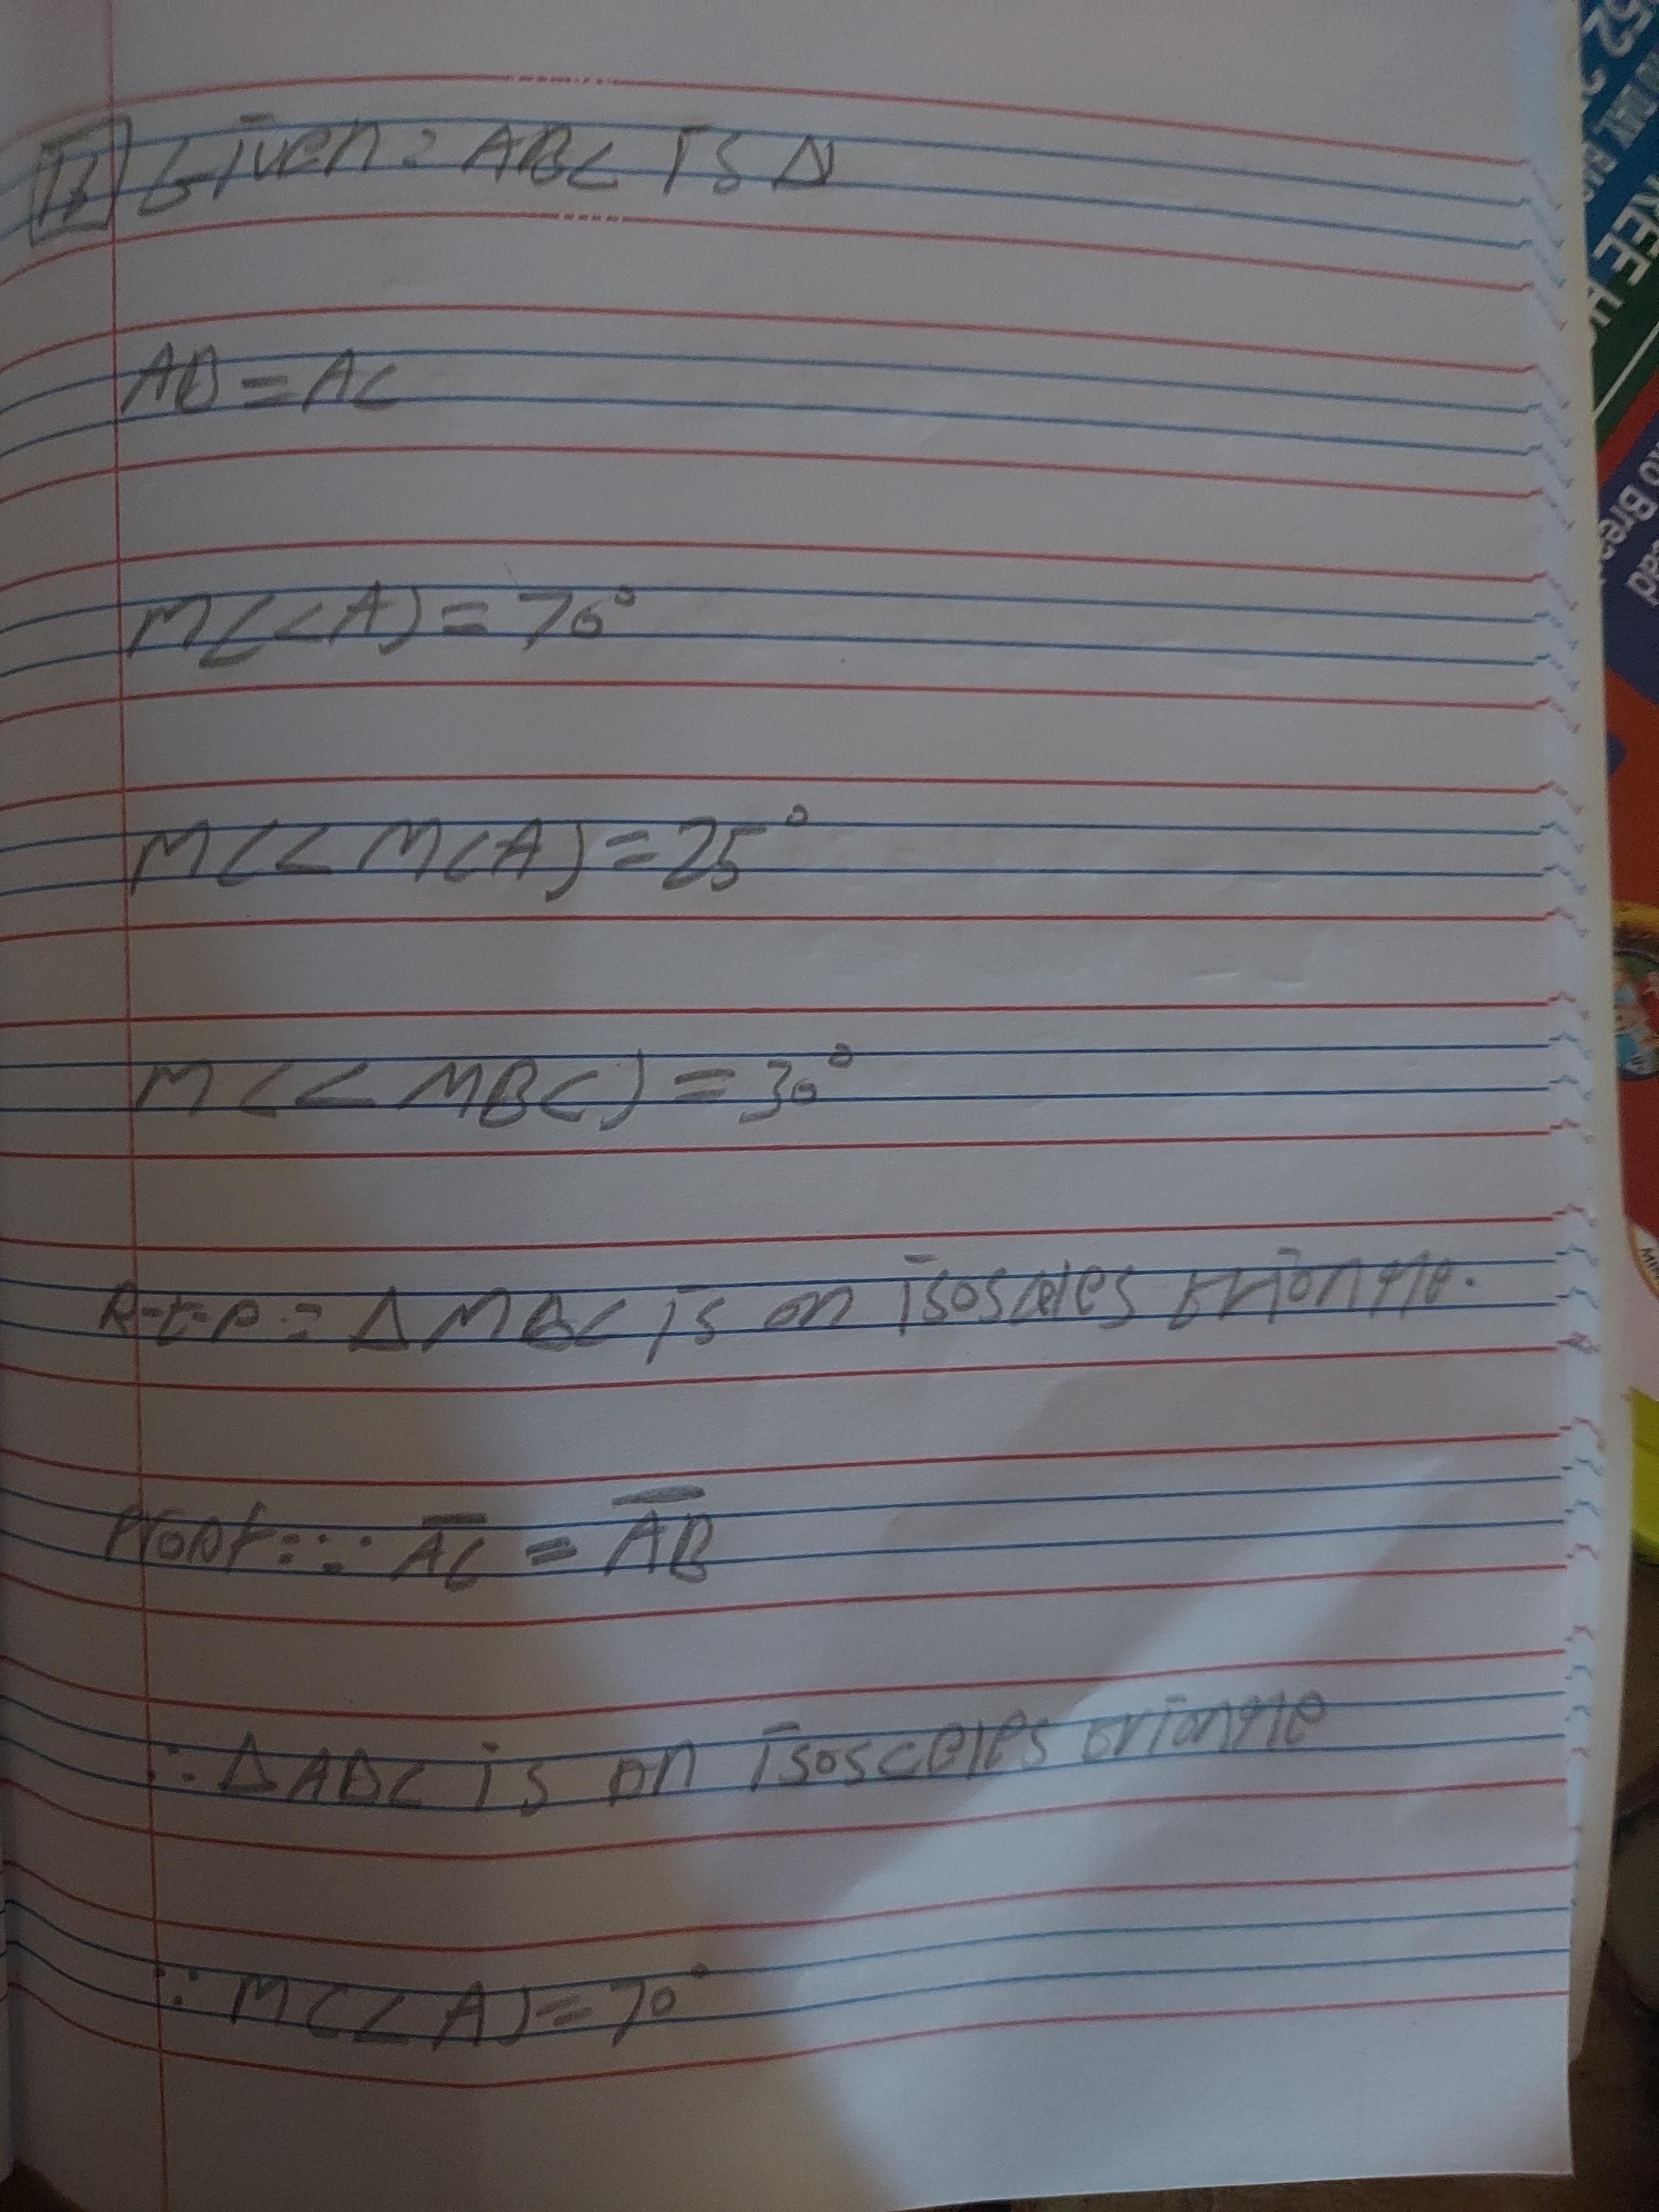 Given: ABC is Δ
AB = AC
M(<A) = 70°
M(< MCA) = 25°
M(< MBC) = 30°
R-t-P = Δ MBC is an isosceles triangle.
∵ AC = AB
∴ Δ ABC is an isosceles triangle
∵ M(< A) = 70°